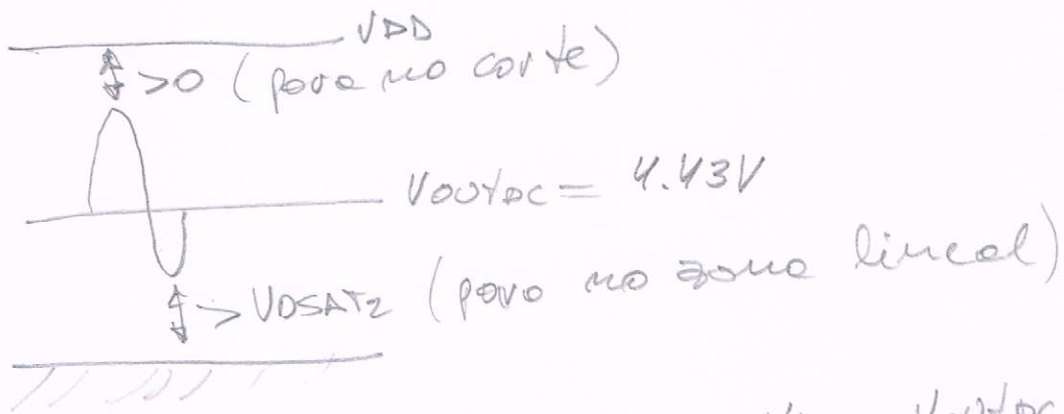 VDD
>0 (para no corte)
VOUTDC = 4.43V
>VDSAT2 (para no zona lineal)
VOUTDC